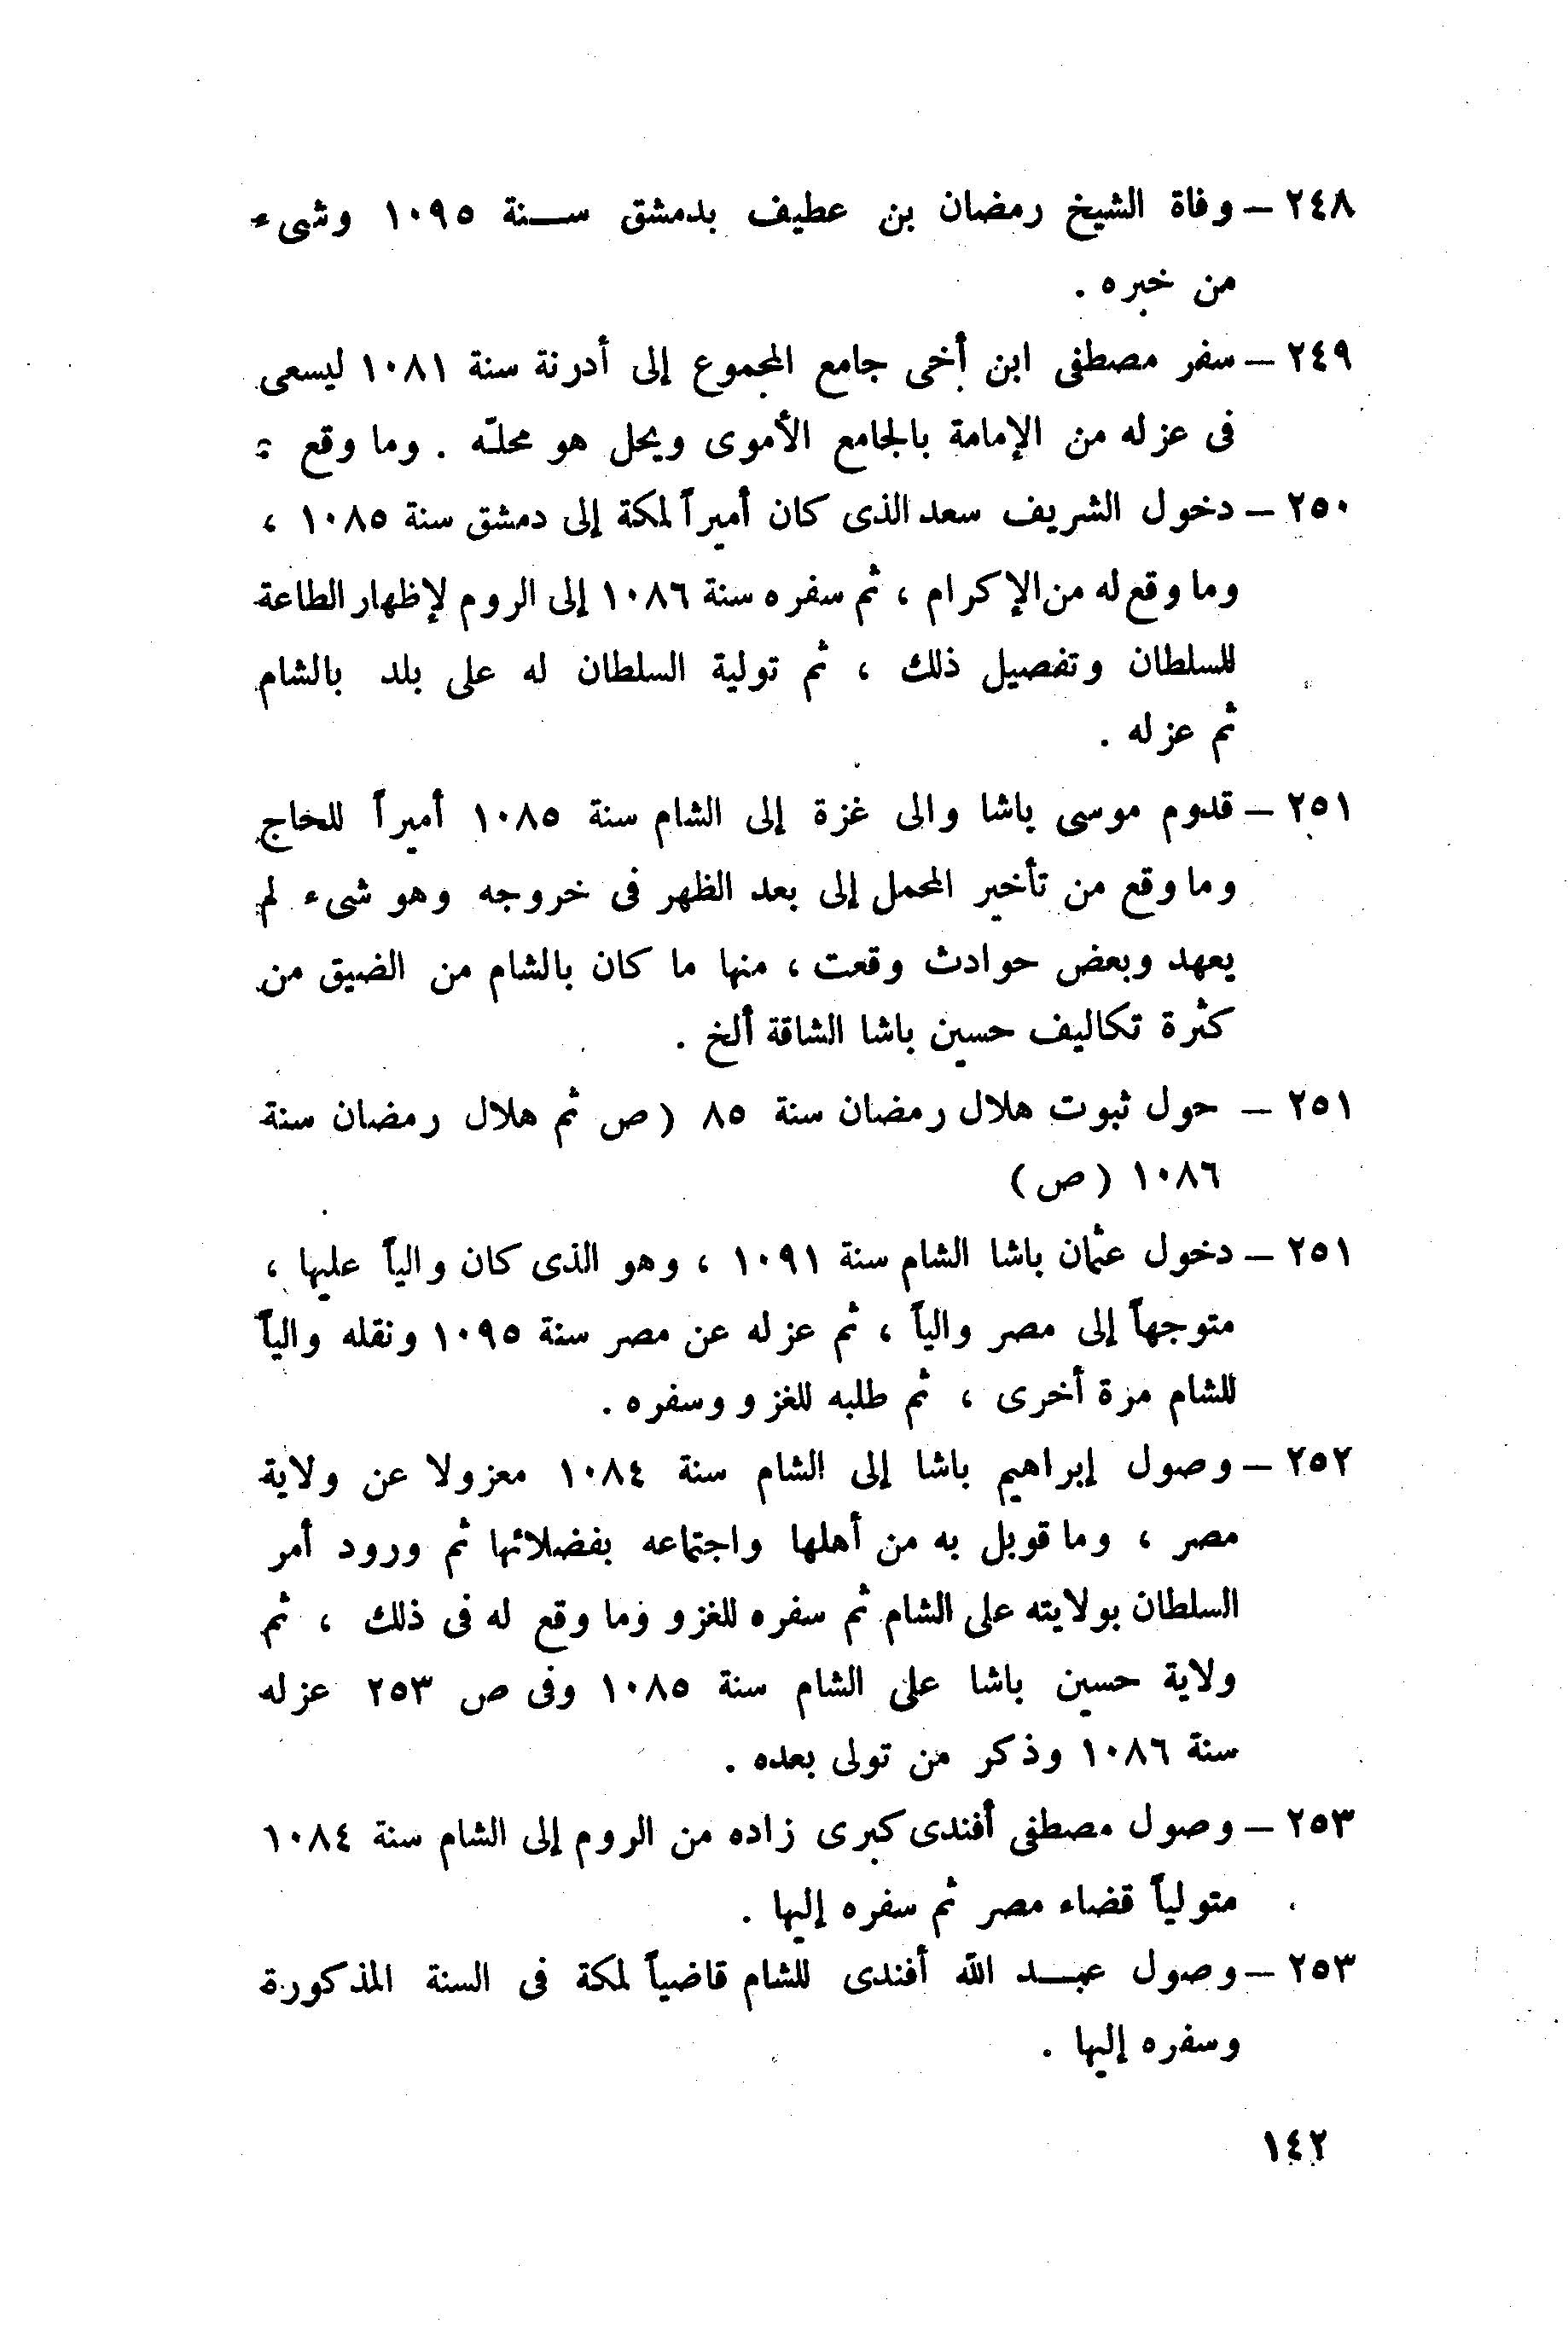 ٢٤٨ – وفاة الشيخ رمضان بن عطيف بدمشق سنة ١٠٩٥ وشىء
من خبره .
٢٤٩ – سفر مصطفى ابن أخى جامع المجموع إلى أدرنة سنة ١٠٨١ ليسعى
فى عزله من الإمامة بالجامع الأموى ويحل هو محلّه . وما وقع :
٢٥٠ – دخول الشريف سعد الذى كان أميراً لمكة إلى دمشق سنة ١٠٨٥ ،
وما وقع له من الإكرام ، ثم سفره سنة ١٠٨٦ إلى الروم لإظهار الطاعة
للسلطان وتفصيل ذلك ، ثم تولية السلطان له على بلد بالشام
ثم عزله .
٢٥١ – قدوم موسى باشا والى غزة إلى الشام سنة ١٠٨٥ أميراً للحاج
وما وقع من تأخير المحمل إلى بعد الظهر فى خروجه وهو شىء لم
يعهد وبعض حوادث وقعت ، منها ما كان بالشام من الضيق من
كثرة تكاليف حسين باشا الشاقة ألخ .
٢٥١ – حول ثبوت هلال رمضان سنة ٨٥ (ص ثم هلال رمضان سنة
١٠٨٦ (ص)
٢٥١ – دخول عثمان باشا الشام سنة ١٠٩١ ، وهو الذى كان والياً عليها ،
متوجهاً إلى مصر والياً ، ثم عزله عن مصر سنة ١٠٩٥ ونقله والياً
للشام مرة أخرى ، ثم طلبه للغزو وسفره .
٢٥٢ – وصول إبراهيم باشا إلى الشام سنة ١٠٨٤ معزولا عن ولاية
مصر ، وما قوبل به من أهلها واجتماعه بفضلائها ثم ورود أمر
السلطان بولايته على الشام ثم سفره للغزو وما وقع له فى ذلك ، ثم
ولاية حسين باشا على الشام سنة ١٠٨٥ وفى ص ٢٥٣ عزله
سنة ١٠٨٦ وذكر من تولى بعده .
٢٥٣ – وصول مصطفى أفندى كبرى زاده من الروم إلى الشام سنة ١٠٨٤
متولياً قضاء مصر ثم سفره إليها .
٢٥٣ – وصول عبد الله أفندى للشام قاضياً لمكة فى السنة المذكورة
وسفره إليها .
١٤٢